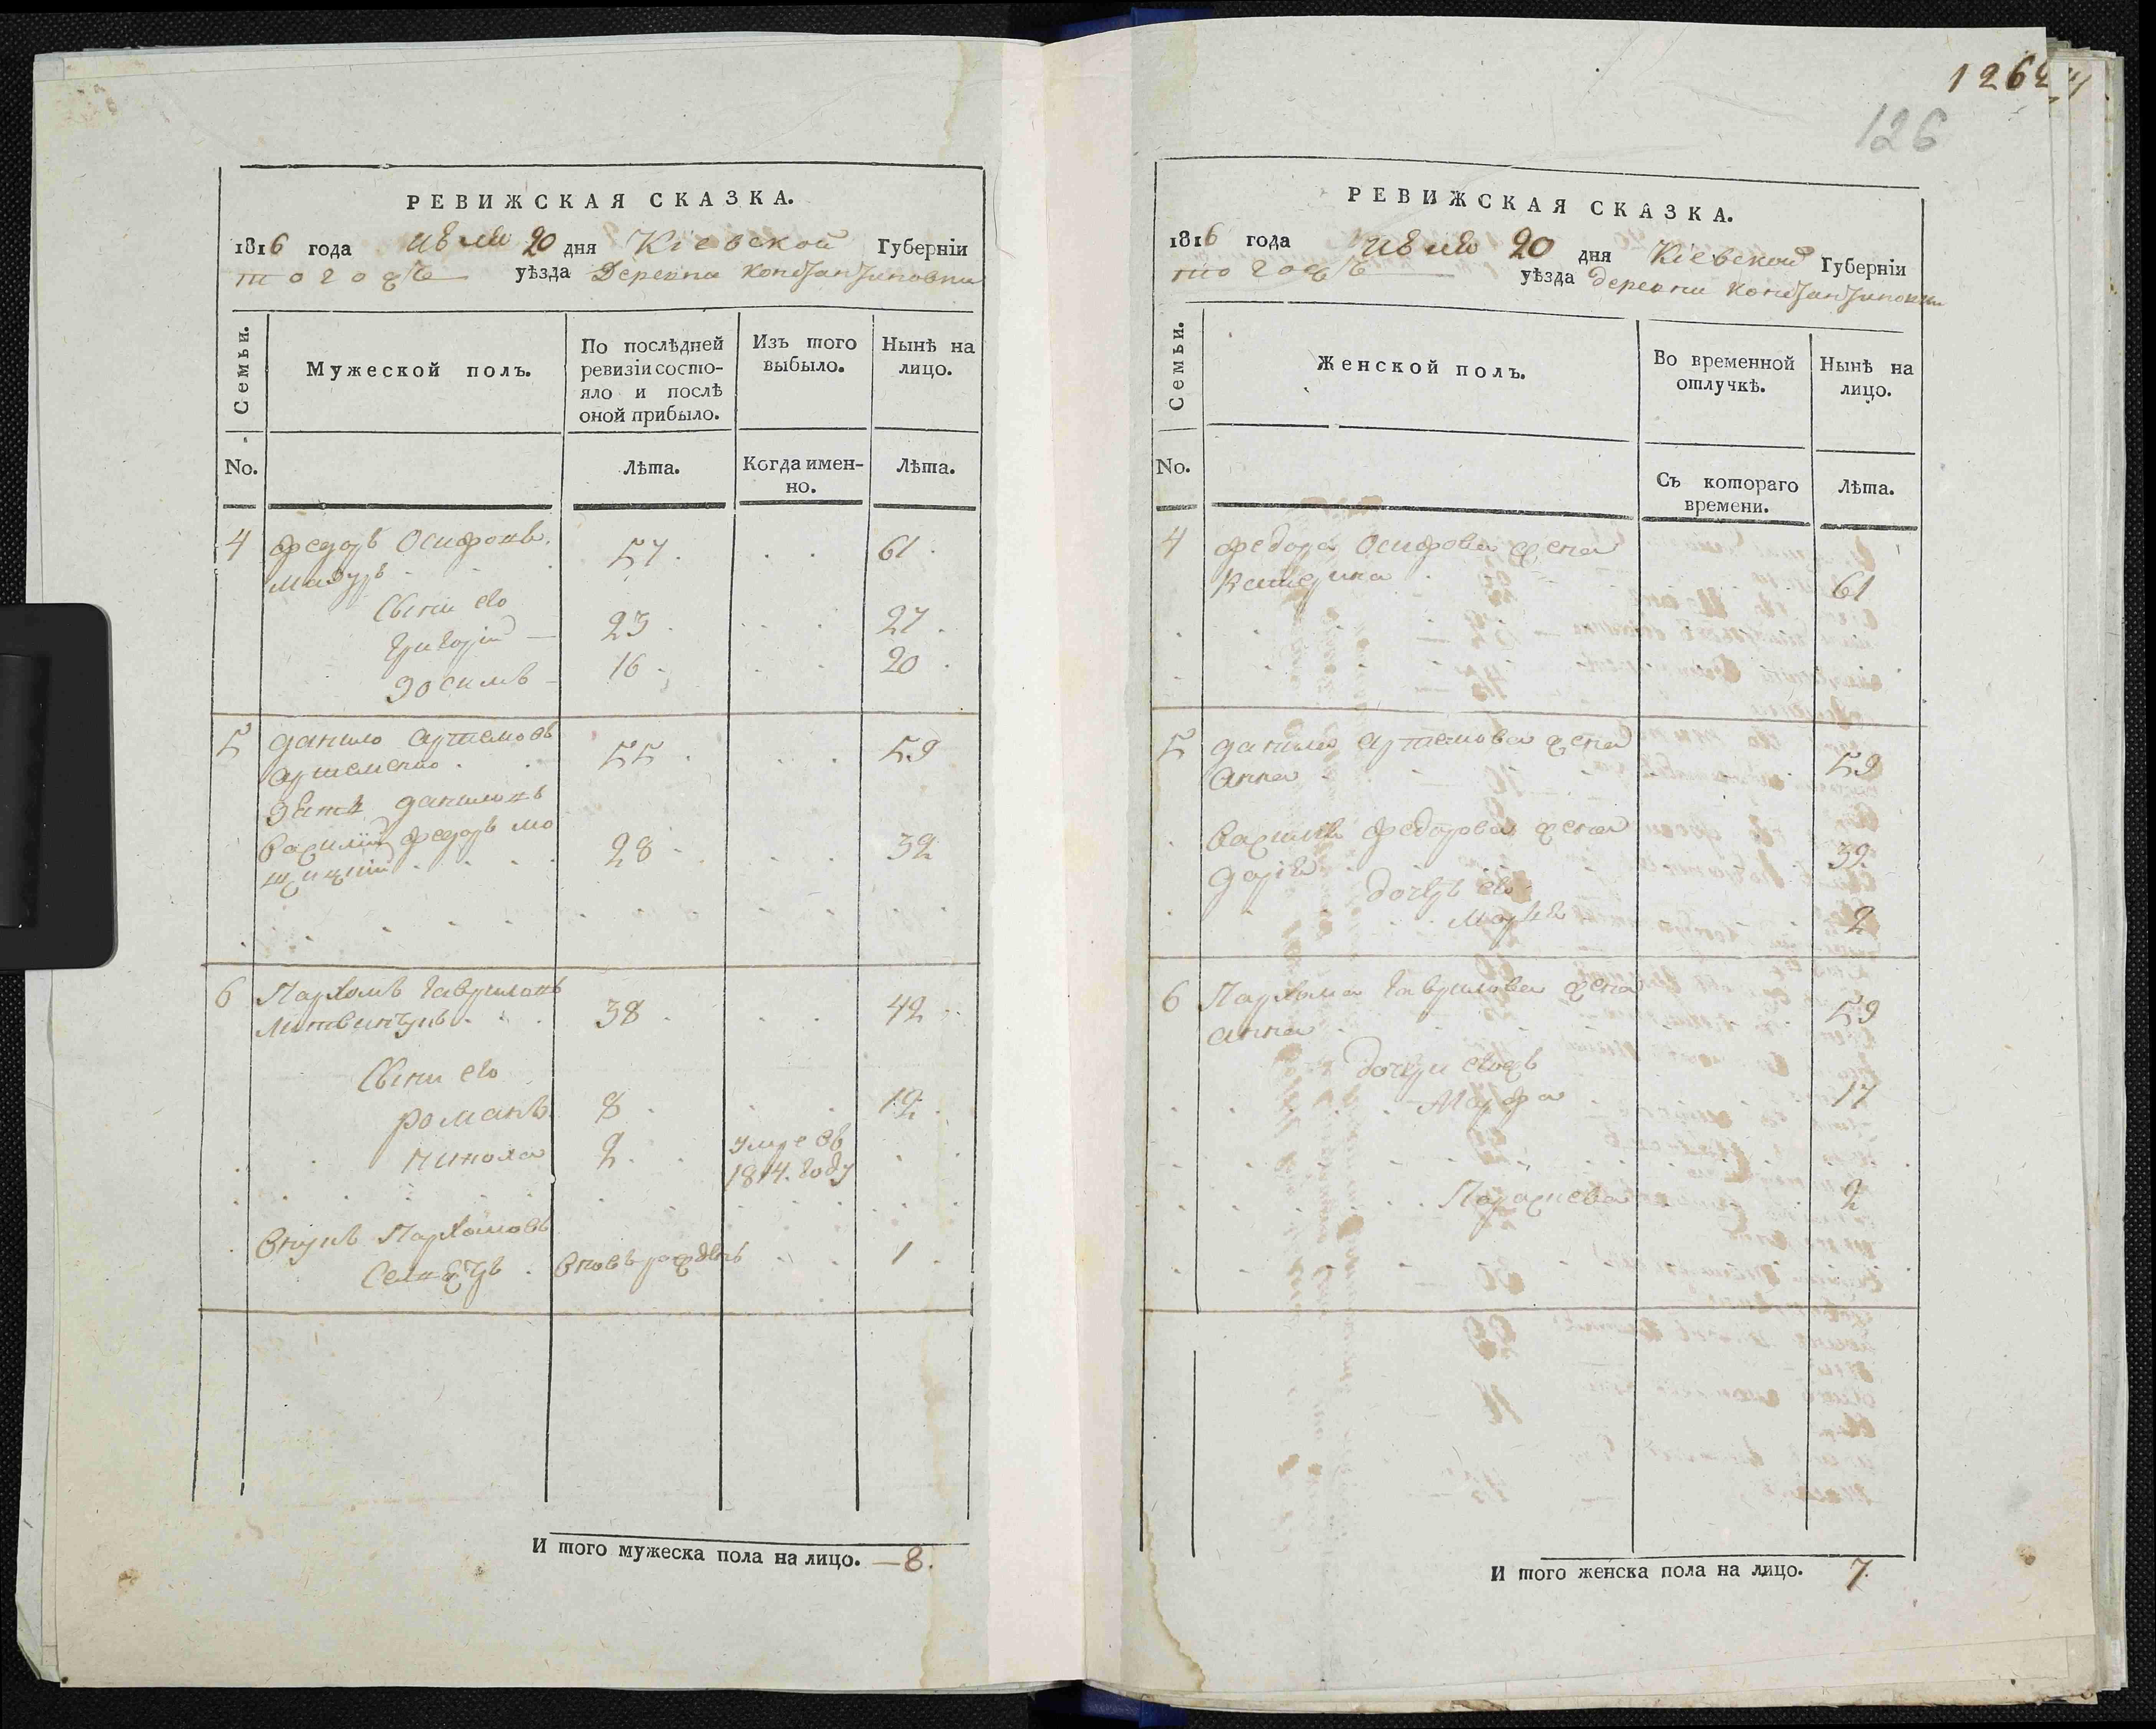 РЕВИЖСКАЯ СКАЗКА.
1816 года Июля 20 дня Кіевской Губерніи
тогожъ уѣзда Деревни Константиновки
Семьи.
Мужеской полъ.
По послѣдней ревизіи состо-
яло и послѣ
оной прибыло.
Изъ того
выбыло.
Нынѣ на
лицо.
No.
Лѣта.
Когда имен-
но.
Лѣта.
4 Федоръ Осиповъ 57 61
Мазуръ
Сыни его
Григорій 23 27
Зосимъ 16 20
5 Данило Артемовъ 55 59
Артеменко
Зять Даниловъ
Василій Федоровъ 28 32
6 Пархомъ Гавриловъ
Литвинчукъ 38 42
Сыни его
Романъ 8 12
Никола 2 Умре въ
1814. году
Внукъ Пархомовъ
вновь рожденъ 1
И того мужеска пола на лицо. 8.
1262
126
РЕВИЖСКАЯ СКАЗКА.
1816 года Июля 20 дня Кіевской Губерніи
тогожъ уѣзда Деревни Константиновки
Семьи.
Женской полъ.
Во временной
отлучкѣ.
Нынѣ на
лицо.
No.
Съ котораго
времени.
Лѣта.
4 Федора Осипова жена
Катерина 61
5 Данила Артемова жена
Анна 59
Василія Федорова жена
Дарія 32
дочерь его
2
6 Пархома Гаврилова жена
Анна 59
дочери
Марфа 17
Параскева 2
И того женска пола на лицо. 7.